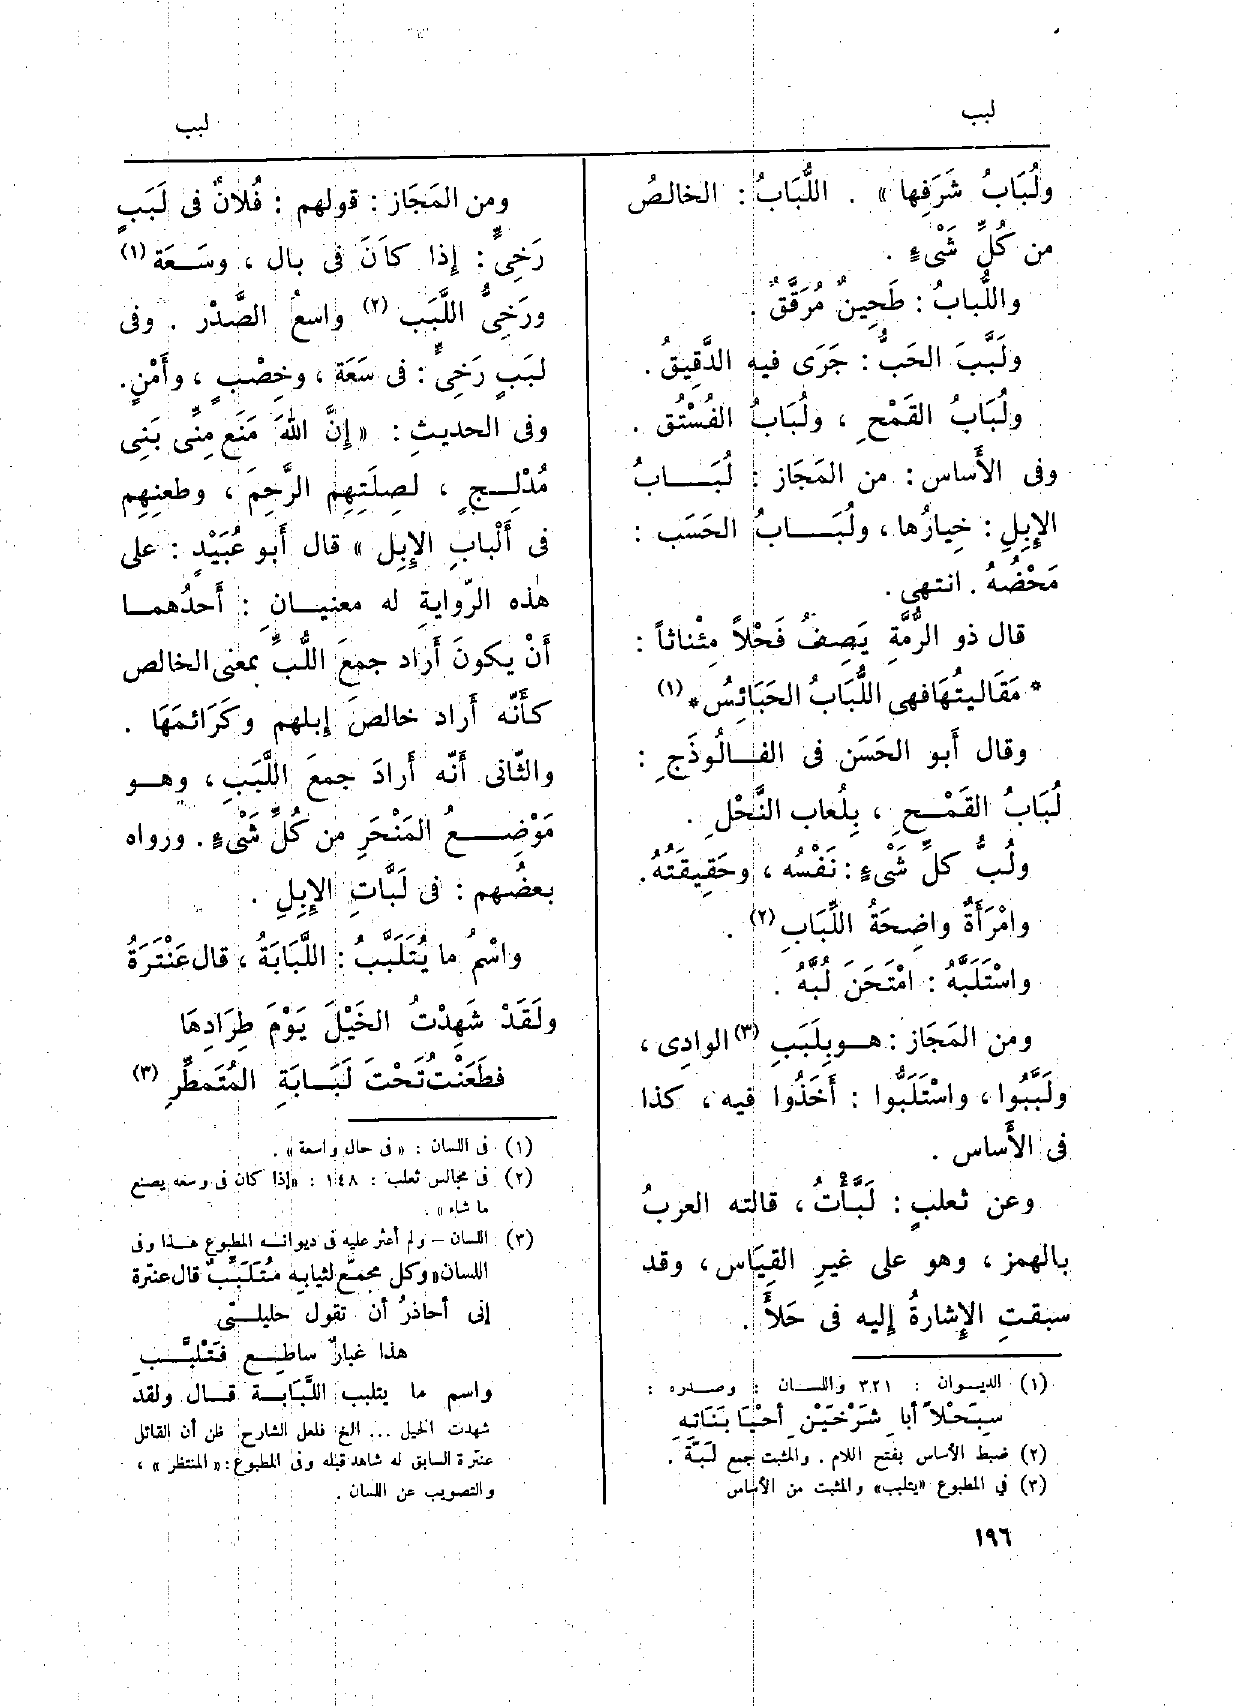 لبب
لبب
ولُبَابُ شَرَفِها» . اللُّبَابُ : الخالصُ
من كُلِّ شَىْءٍ .
واللُّبابُ : طَحِينٌ مُرَقَّقٌ .
ولَبَّبَ الحَبُّ : جَرَى فيه الدَّقِيقُ .
ولُبَابُ القَمْحِ ، ولُبَابُ الفُسْتُقِ .
وفى الأَساس : من المَجَاز : لُبَــابُ
الإِبِلِ : خِيارُها ، ولُبَــابُ الحَسَب :
مَحْضُهُ . انتهى .
قال ذو الرُّمَّةِ يَصِفُ فَحْلاً مِئْناثاً :
* مَقَالِيتُهَا فهى اللُّبَابُ الحَبَائِسُ * (١)
وقال أَبو الحَسَن فى الفــالُوذَجِ :
لُبَابُ القَمْــحِ ، بِلُعاب النَّحْلِ .
ولُبُّ كلِّ شَىْءٍ : نَفْسُه ، وحَقِيقَتُهُ .
وامْرَأَةٌ واضِحَةُ اللِّبَابِ (٢) .
واسْتَلَبَّهُ : امْتَحَنَ لُبَّهُ .
ومن المَجَاز : هــو بِلَبَبِ (٣) الوادِى ،
ولَبَّبُوا ، واسْتَلَبُّوا : أَخَذُوا فيه ، كذا
فى الأَساس .
وعن ثعلبٍ : لَبَّأْتُ ، قالته العربُ
بالهمز ، وهو على غيرِ القِيَاس ، وقد
سبقتِ الإِشارةُ إِليه فى حَلأَ .
(١) الديوان : ٣٢١ واللســان : وصــدره :
سِبَحْلاً أبا شَرْخَيْنِ أحْيَا بَنَاتِهِ
(٢) ضبط الأساس بفتح اللام . والمثبت جمع لَبَّة .
(٣) في المطبوع «يتلبب» والمثبت من الأساس
ومن المَجَاز : قولهم : فُلَانٌ فى لَبَبٍ
رَخِىٍّ : إذا كَانَ فى بال ، وسَــعَة (١)
ورَخِىُّ اللَّبَب (٢) واسعُ الصَّدْر . وفى
لَبَبٍ رَخِىٍّ : فى سَعَة ، وخِصْبٍ ، وأَمْنٍ.
وفى الحديثِ : «إنَّ اللهَ مَنَع مِنِّى بَنِى
مُدْلِــجٍ ، لصِلَتِهِم الرَّحِمَ ، وطعنِهِم
فى أَلْبابِ الإِبِلِ» قال أَبو عُبَيْدٍ : على
هٰذه الرّوايةِ له معنيــانِ : أَحدُهمــا
أَنْ يكونَ أَراد جمعَ اللُّبِّ بمعنى الخالص
كأَنّه أَراد خالصَ إبلهم وكَرَائمَهَا .
والثّانى أَنّه أَرادَ جمعَ اللَّبَبِ ، وهــو
مَوْضِــعُ المَنْحَرِ من كُلِّ شَىْءٍ . ورواه
بعضُهم : فى لَبَّاتِ الإِبِلِ .
واسْمُ ما يُتَلَبَّبُ : اللَّبَابَةُ ، قال عَنْتَرَةُ
ولَقَدْ شَهِدْتُ الخَيْلَ يَوْمَ طِرَادِها
فطَعَنْتُ تَحْتَ لَبَــابَةِ المُتَمَطِّرِ (٣)
(١) فى اللسان : «فى حال واسعة» .
(٢) فى مجالس ثعلب : ١٤٨ : «إذا كان فى وسعه يصنع
ما شاء» .
(٣) اللسان – ولم أعثر عليه فى ديوانــه المطبوع هــذا وفى
اللسان «وكل مجمِّع لثيابِه مُتَلَبِّبٌ قال عنترة
إنى أحاذرُ أن تقول حليلــتى
هذا غبارٌ ساطِــع فَتَلبَّــبِ
واسم ما يتلبب اللَّبَابَــة قــال ولقد
شهدت الخيل ... الخ فلعل الشارح ظن أن القائل
عنترة السابق له شاهد قبله وفى المطبوع : «المنتظر» ،
والتصويب عن اللسان .
١٩٦